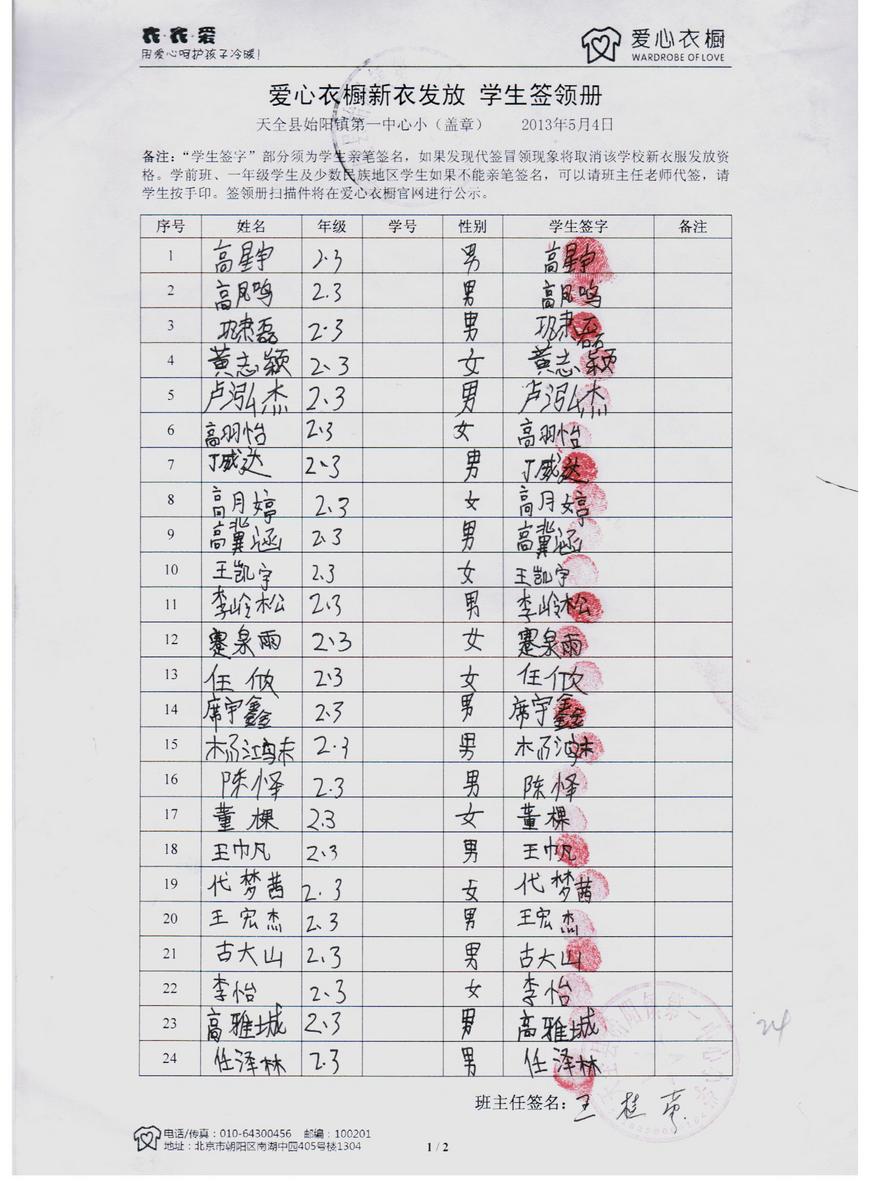 衣·衣·爱
用爱心呵护孩子冷暖！
爱心衣橱
WARDROBE OF LOVE
爱心衣橱新衣发放 学生签领册
天全县始阳镇第一中心小（盖章） 2013年5月4日
备注：“学生签字”部分须为学生亲笔签名，如果发现代签冒领现象将取消该学校新衣服发放资
格。学前班、一年级学生及少数民族地区学生如果不能亲笔签名，可以请班主任老师代签，请
学生按手印。签领册扫描件将在爱心衣橱官网进行公示。
序号 姓名 年级 学号 性别 学生签字 备注
1 高星宇 2.3 男 高星宇
2 高凤鸣 2.3 男 高凤鸣
3 2.3 男
4 黄志颖 2.3 女 黄志颖
5 卢泓杰 2.3 男 卢泓杰
6 高羽怡 2.3 女 高羽怡
7 丁威达 2.3 男 丁威达
8 高月婷 2.3 女 高月婷
9 高冀涵 2.3 男 高冀涵
10 王凯宇 2.3 女 王凯宇
11 李岭松 2.3 男 李岭松
12 蹇泉雨 2.3 女 蹇泉雨
13 任攸 2.3 女 任攸
14 席宇鑫 2.3 男 席宇鑫
15 杨鸿未 2.3 男 杨鸿未
16 陈怿 2.3 男 陈怿
17 董棵 2.3 女 董棵
18 王巾凡 2.3 男 王巾凡
19 代梦茜 2.3 女 代梦茜
20 王宏杰 2.3 男 王宏杰
21 古大山 2.3 男 古大山
22 李怡 2.3 女 李怡
23 高雅城 2.3 男 高雅城
24 任泽林 2.3 男 任泽林
24
班主任签名：王桂
电话/传真：010-64300456 邮编：100201
地址：北京市朝阳区南湖中园405号楼1304
1 / 2